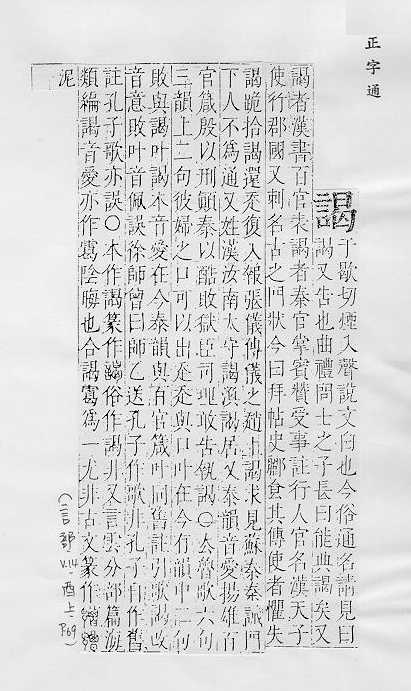 正字通
謁 于歇切煙入聲說文白也今俗通名請見曰
謁又告也曲禮問士之子長曰能典謁矣又
謁者漢書百官表謁者秦官掌賓贊受事註行人官名漢天子
使行郡國又刺名古之門狀今曰拜帖史酈食其傳使者懼失
謁跪拾謁還走復入報張儀傳儀之趙上謁求見蘇秦秦誡門
下人不爲通又姓漢汝南太守謁渙謁居又泰韻音愛揚雄百
官箴殷以刑顛秦以酷敗獄臣司理敢告執謁○去魯歌六句
三韻上二句彼婦之口可以出走走與口叶在今有韻中二句
敗與謁叶謁本音愛在今泰韻與百官箴叶同舊註引歌謁改
音意敗叶音佩誤徐師曾曰師乙送孔子作歌非孔子自作舊
註孔子歌亦誤○本作謁篆作俗作謁非又言雲分部篇海
類編謁音愛亦作靄陰晦也合謁靄爲一尤非古文篆作
泥
(言部 V.14 酉上 P.69)